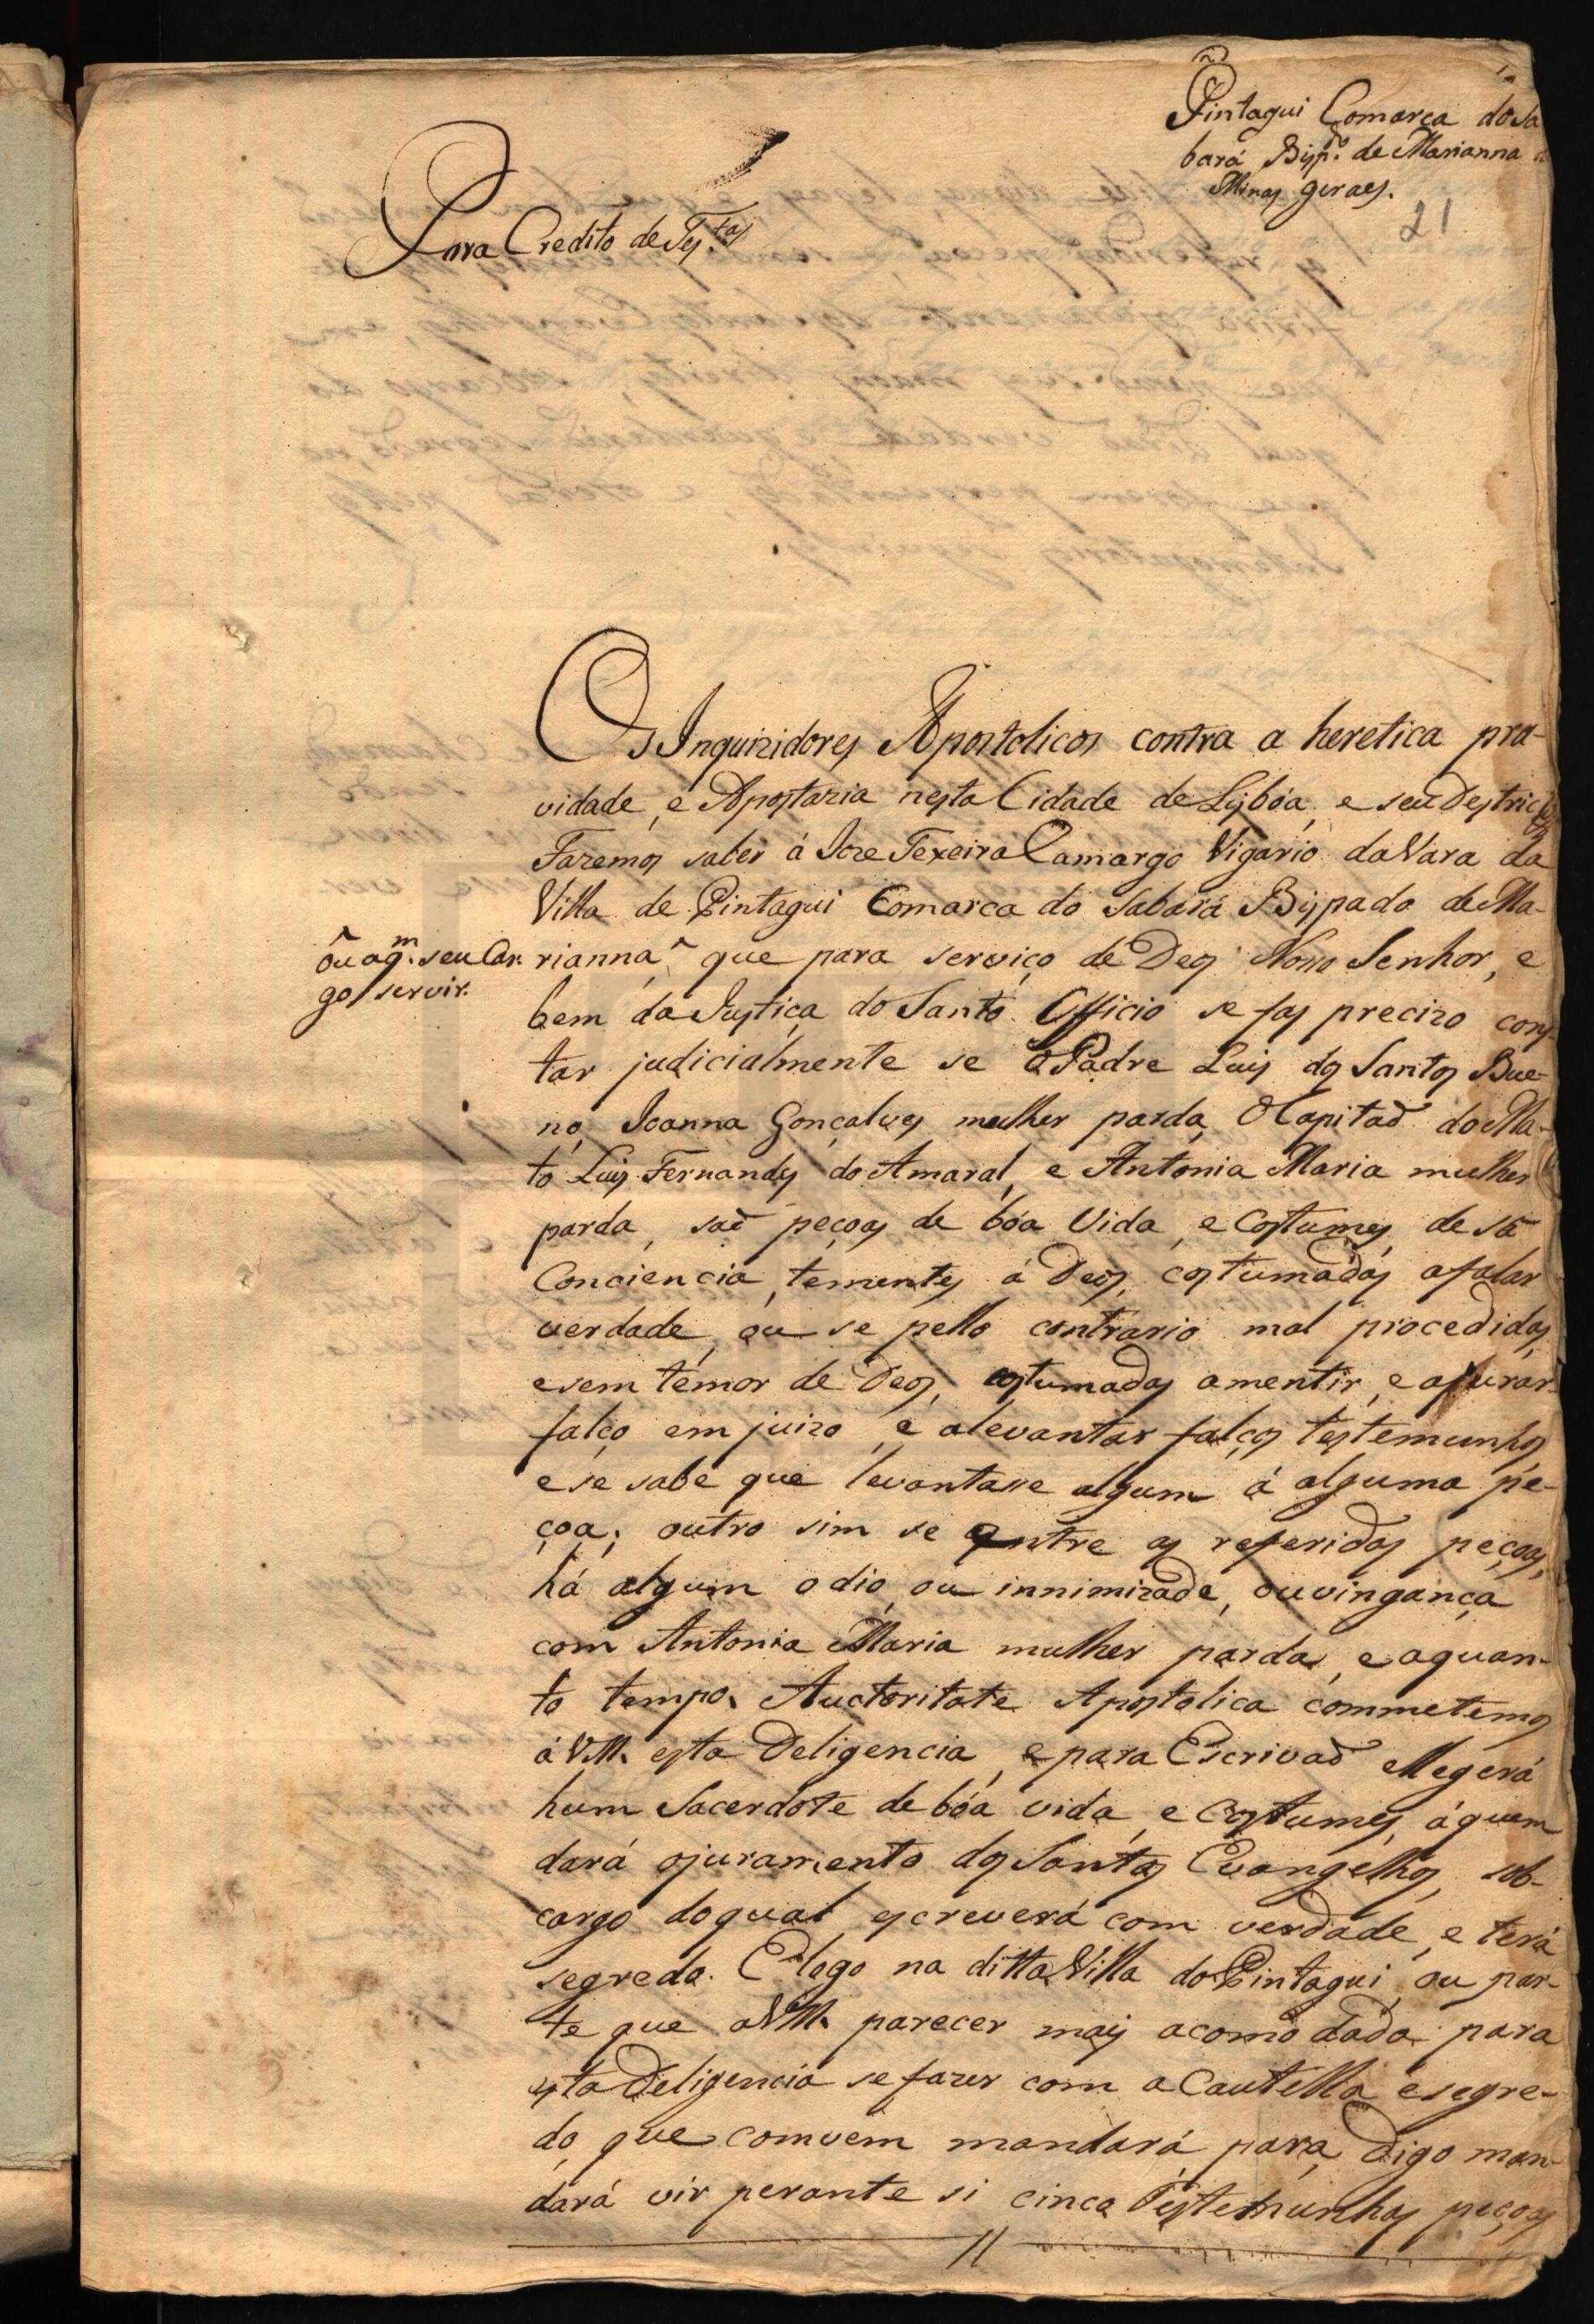 Pintagui Comarca do Sa
bará Bisp.do de Marianna
Minas geraes.
21
Para Credito de Tes.tas
Os Inquizidores Apostolicos contra a heretica pra-
vidade, e Apostazia nesta Cidade de Lisbóa, e seu Destricto
Fazemos saber á Joze Texeira Camargo Vigario da Vara da
Villa de Pintagui Comarca do Sabará Bispado de Ma-
rianna^ que para serviço de Deos Nosso Senhor, e
^ou a q.m seu Car-
go servir.
bem da Justiça do Santo Officio se fas precizo cons
tar judicialmente se o Padre Luis dos Santos Bue-
no, Joanna Gonçalves mulher parda, O Capitaõ do Ma-
to Luis Fernandes do Amaral, e Antonia Maria mulher
parda, saõ peçoas de bóa Vida, e Costumes, de sã
Conciencia, tementes á Deos, costumadas a falar
verdade, ou se pello contrario mal procedidas,
e sem temor de Deos, costumadas a mentir, e a jurar
falço em juizo, e alevantar falços testemunhos
e se sabe que levantasse algum á alguma pe-
çoa; outro sim se entre as referidas peçoas,
há algum odio, ou innimizade, ou vingança
com Antonia Maria mulher parda, e a quan-
to tempo. Auctoritate Apostolica commetemos
á VM. esta Deligencia, e para Escrivaõ Elegerá
hum Sacerdote de bóa vida, e Costumes, á quem
dará o juramento dos Santos Evangelhos, sob-
cargo do qual escreverá com verdade, e terá
segredo. E logo na ditta Villa do Pintagui, ou par-
te que a VM. parecer mais acomodada para
esta Deligencia se fazer com a Cautella, e segre-
do, que comvem mandará para, digo man-
dará vir perante si cinco Testemunhas peçoas